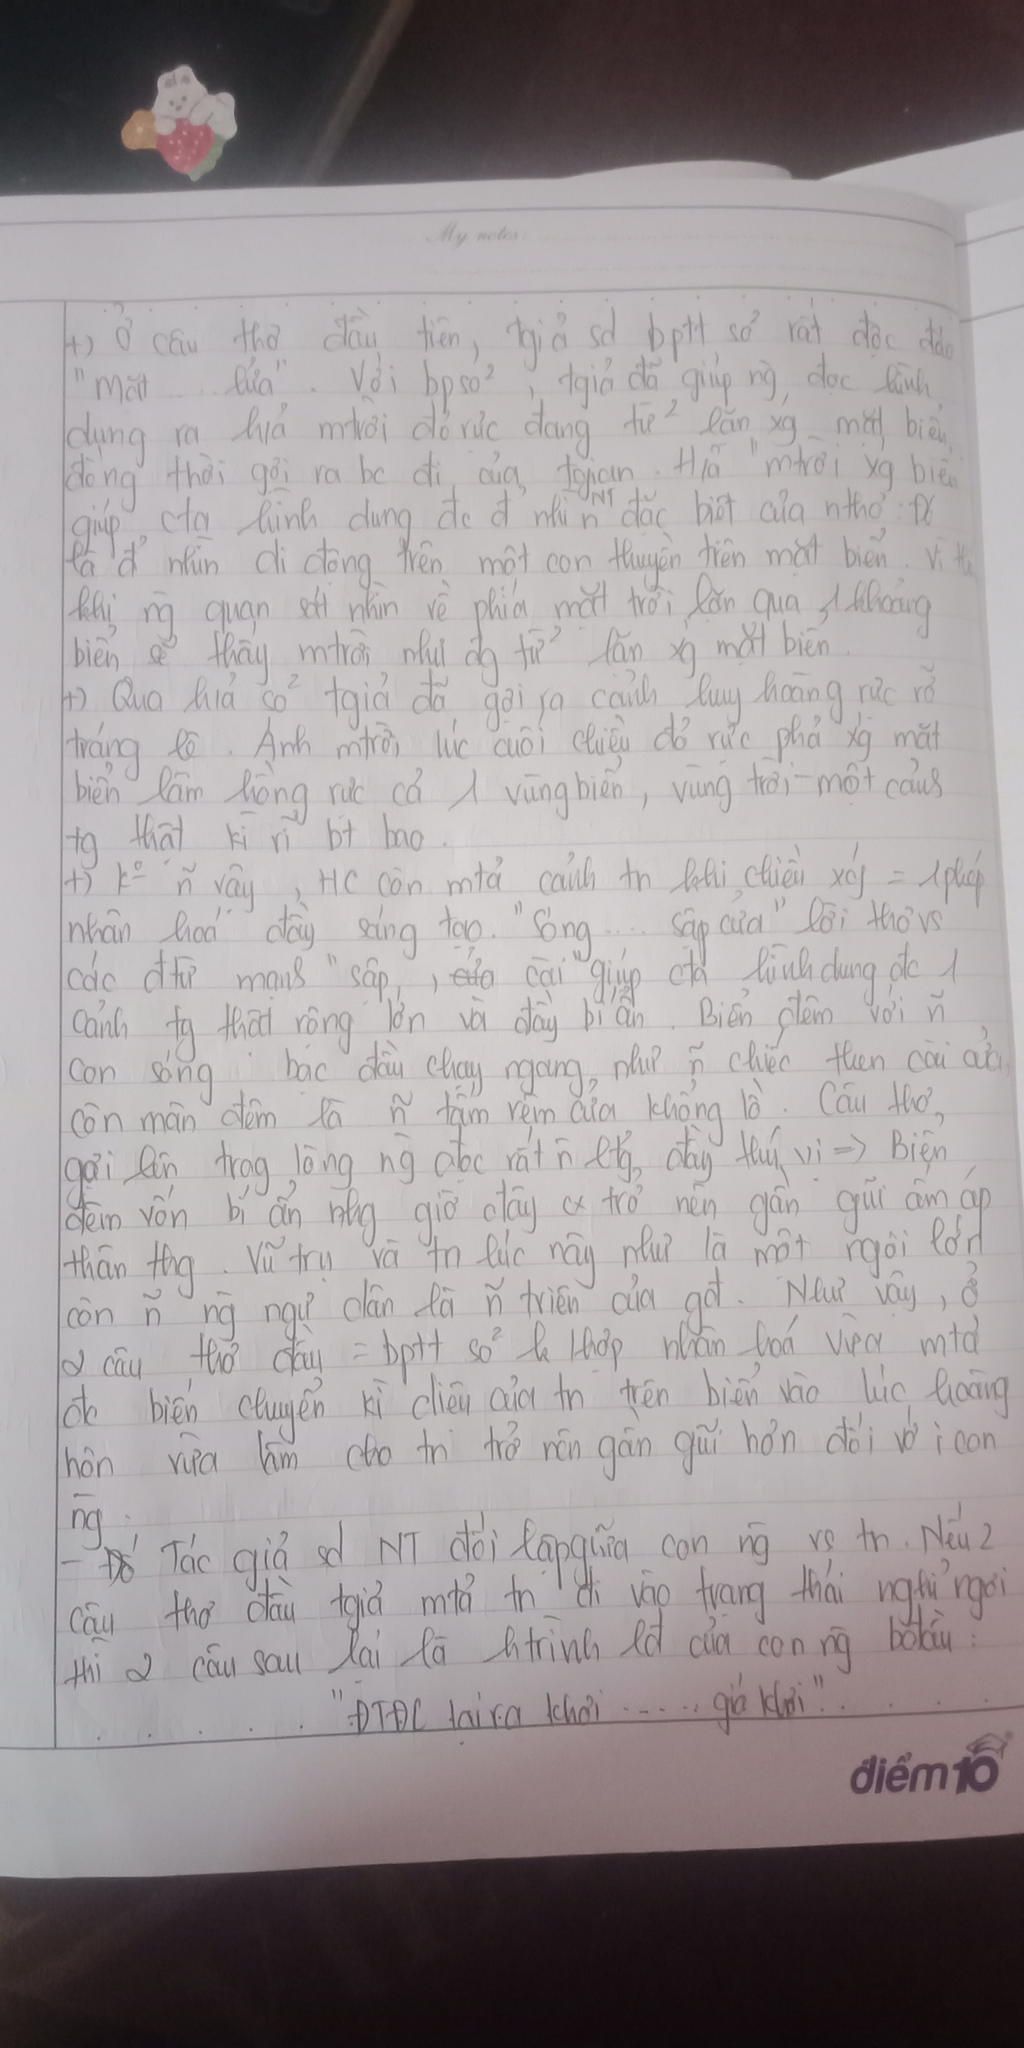 My notes:
+) Ở câu thơ đầu tiên, tgiả sd bptt so² rất độc đáo
"mặt ... lửa". Với bpso², tgiả đã giúp ng đọc hình
dung ra h/ả mtrời đỏ rực đang từ² lặn xg mặt biển,
đồng thời gợi ra bc đi của tgian. H/ả "mtrời xg biển
giúp cta hình dung đc đ' nhìn NT đặc biệt của nthơ: Đó
là đ' nhìn di động trên một con thuyền trên mặt biển. Vì thế
khi ng quan sát nhìn về phía mặt trời lặn qua 1 khoảng
biển sẽ thấy mtrời như đg từ² lặn xg mặt biển.
+) Qua h/ả so² tgiả đã gợi ra cảnh huy hoàng rực rỡ
tráng lệ. Ánh mtrời lúc cuối chiều đỏ rực phả xg mặt
biển làm hồng rực cả 1 vùng biển, vùng trời - một cảnh
tg thật kì vĩ bt bao.
+) k⁰ ñ vậy, HC còn mtả cảnh tn khi chiều xg = 1 phép
nhân hoá đầy sáng tạo. "Sóng .... sập cửa" lời thơ vs
các đtừ mạnh "sập, , cửa cài" giúp cta hình dung đc 1
cảnh tg thật rộng lớn và đầy bí ẩn. Biển đêm với ñ
con sóng bạc đầu chạy ngang, như ñ chiếc then cài cửa
còn màn đêm là ñ tấm rèm cửa khổng lồ. Câu thơ,
gợi lên trog lòng ng đọc rất ñ ltg, đầy thú vị => Biển
đêm vốn bí ẩn nhg giờ đây cx trở nên gần gũi ấm áp
thân thg. Vũ trụ và tn lúc này như là một ngôi lớn
còn ñ ng ngư dân là ñ triển của gđ. Như vậy, ở
2 câu thơ đầy = bptt so² k/hợp nhân hoá vừa mtả
đc biến chuyển kì diệu của tn trên biển vào lúc hoàng
hôn vừa làm cho tn trở nên gần gũi hơn đối với con
ng.
- Đó Tác giả sd NT đối lập giữa con ng vs tn. Nếu 2
câu thơ đầu tgiả mtả tn đi vào trạng thái nghỉ ngơi
thì 2 câu sau lại là htrình lđ của con ng bđầu:
"ĐTĐC lại ra khơi ..... gió khơi".
điểm 10